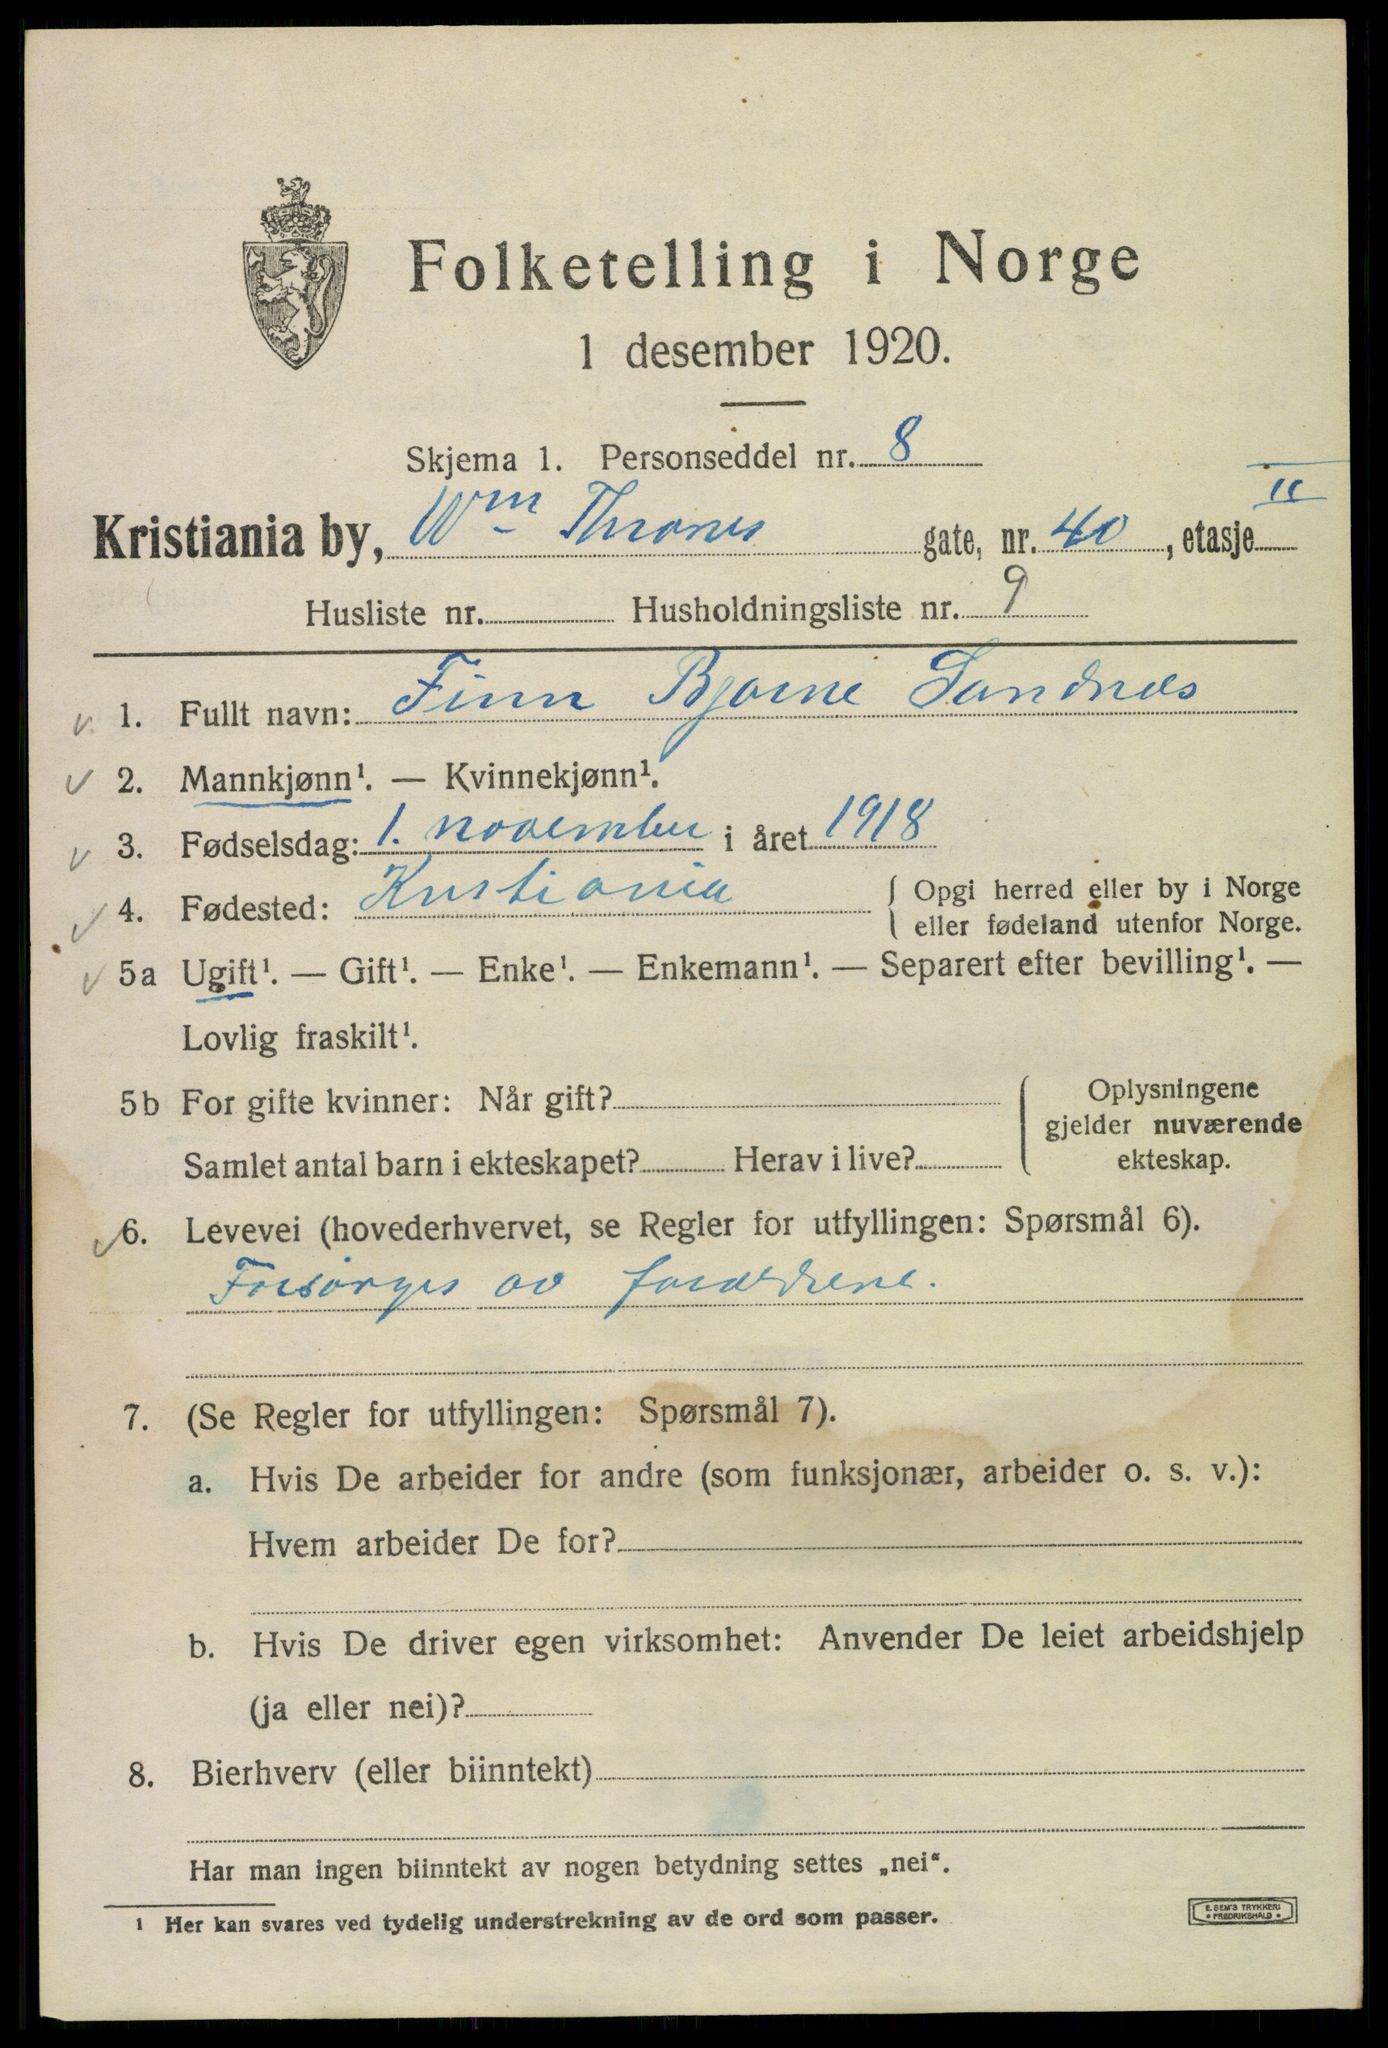 Folketelling i Norge
1 desember 1920.
Skjema 1. Personseddel nr. 8
Kristiania by, Wm Thranes gate, nr. 40, etasje II
Husliste nr. Husholdningsliste nr. 9
1. Fullt navn: Finn Bjarne Sandnes
2. Mannkjønn¹. — Kvinnekjønn¹.
3. Fødselsdag: 1. november i året 1918
4. Fødested: Kristiania { Opgi herred eller by i Norge
eller fødeland utenfor Norge.
5a Ugift¹. — Gift¹. — Enke¹. — Enkemann¹. — Separert efter bevilling¹. —
Lovlig fraskilt¹.
5b For gifte kvinner: Når gift? { Oplysningene
gjelder nuværende
Samlet antal barn i ekteskapet? Herav i live? ekteskap.
6. Levevei (hovederhvervet, se Regler for utfyllingen: Spørsmål 6).
Forsørges av forældrene.
7. (Se Regler for utfyllingen: Spørsmål 7).
a. Hvis De arbeider for andre (som funksjonær, arbeider o. s. v.):
Hvem arbeider De for?
b. Hvis De driver egen virksomhet: Anvender De leiet arbeidshjelp
(ja eller nei)?
8. Bierhverv (eller biinntekt)
Har man ingen biinntekt av nogen betydning settes „nei“.
1 Her kan svares ved tydelig understrekning av de ord som passer.
E. SEM'S TRYKKERI
• FREDRIKSHALD •